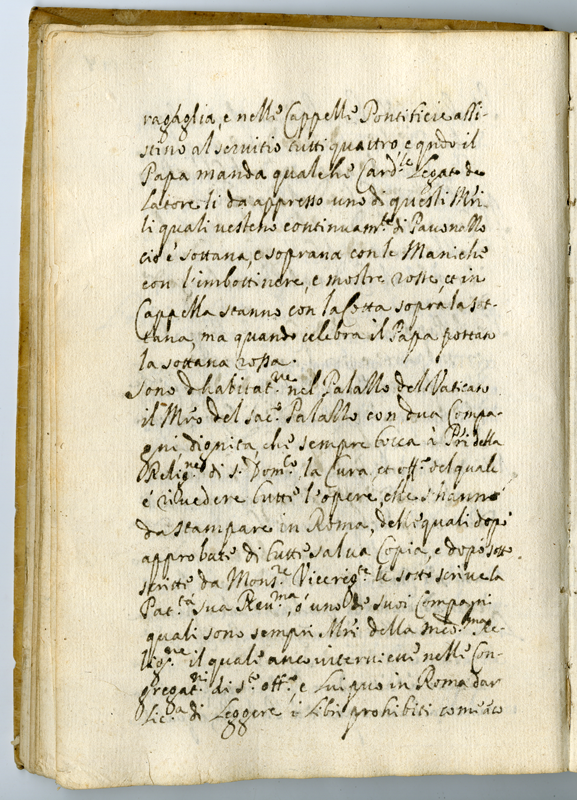 ragaglia, e nelle Cappelle Pontificie assi-
stino al servitio tutti quattro, e qndo il
Papa manda qualche Card.le Legato de
Latere li da appresso uno di questi Mri
li quali vesteno continuam.te di Pavonazzo
cio è sottana, e soprana con le Maniche
con l'imbottinere, e mostre rosse, et in
Cappella stanno con la Cotta sopra la sot-
tana, ma quando celebra il Papa portan
la sottana rossa.
Sono d'habitat.ne nel Palazzo del Vaticano
il Mro del sac.o Palazzo con dua Compa-
gni dignità, che sempre tocca à Pri della
Relig.ne di S. Dom.co, la Cura, et off.o del quale
é rivedere tutte l'opere, che s'hanno
da stampare in Roma, delle quali dopo
approbate di tutte salva Copia, e dopo sotto
scritte da Mons.re Vicereg.te le sotto scrive la
Pat.tà sua Rev.ma, ó uno de suoi Compagni
quali sono sempri Mri della med.ma Re-
lig.ne il quale anco interviene nelle Con-
gregat.ni di S.to off.o, e lui può in Roma dar
Lic.a di Leggere i libri prohibiti come aco